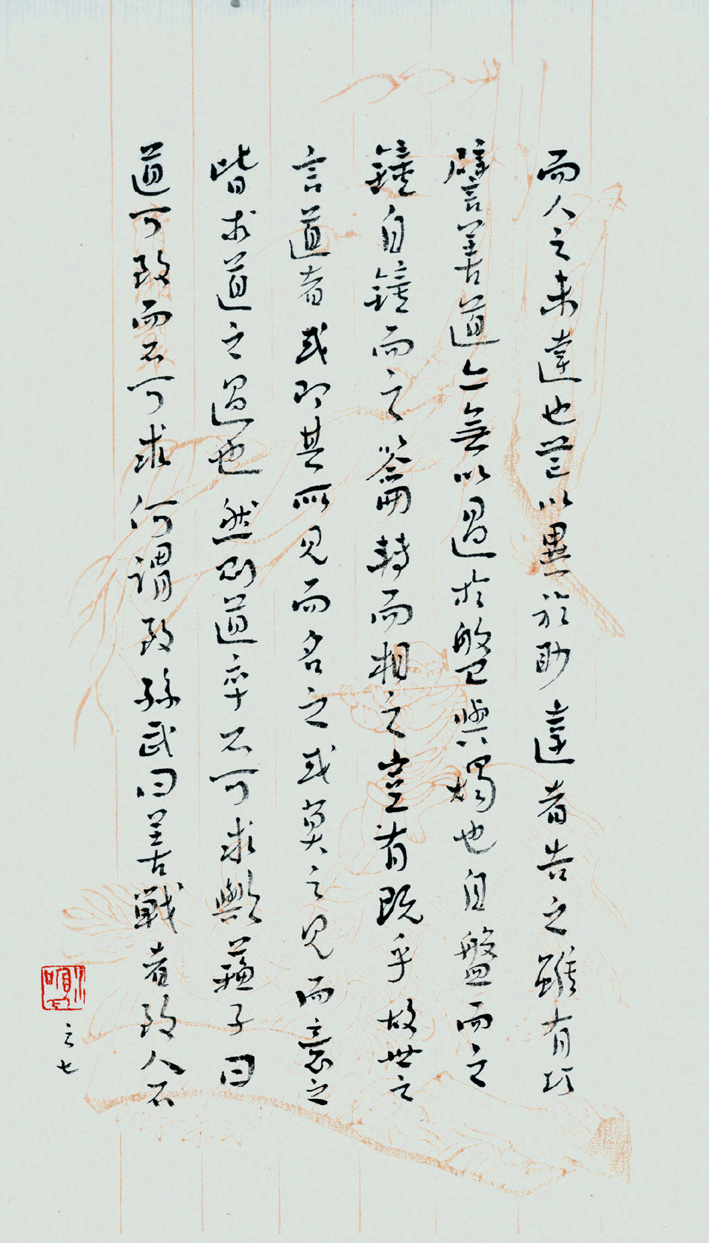 而人之未達也無以異於眇達者告之雖有巧
譬善道亦無以過於盤與燭也自盤而之
鐘自鐘而之籥轉而相之豈有既乎故世之
言道者或即其所見而名之或莫之見而意之
皆求道之過也然則道卒不可求歟蘇子曰
道可致而不可求何謂致孫武曰善戰者致人不
之七